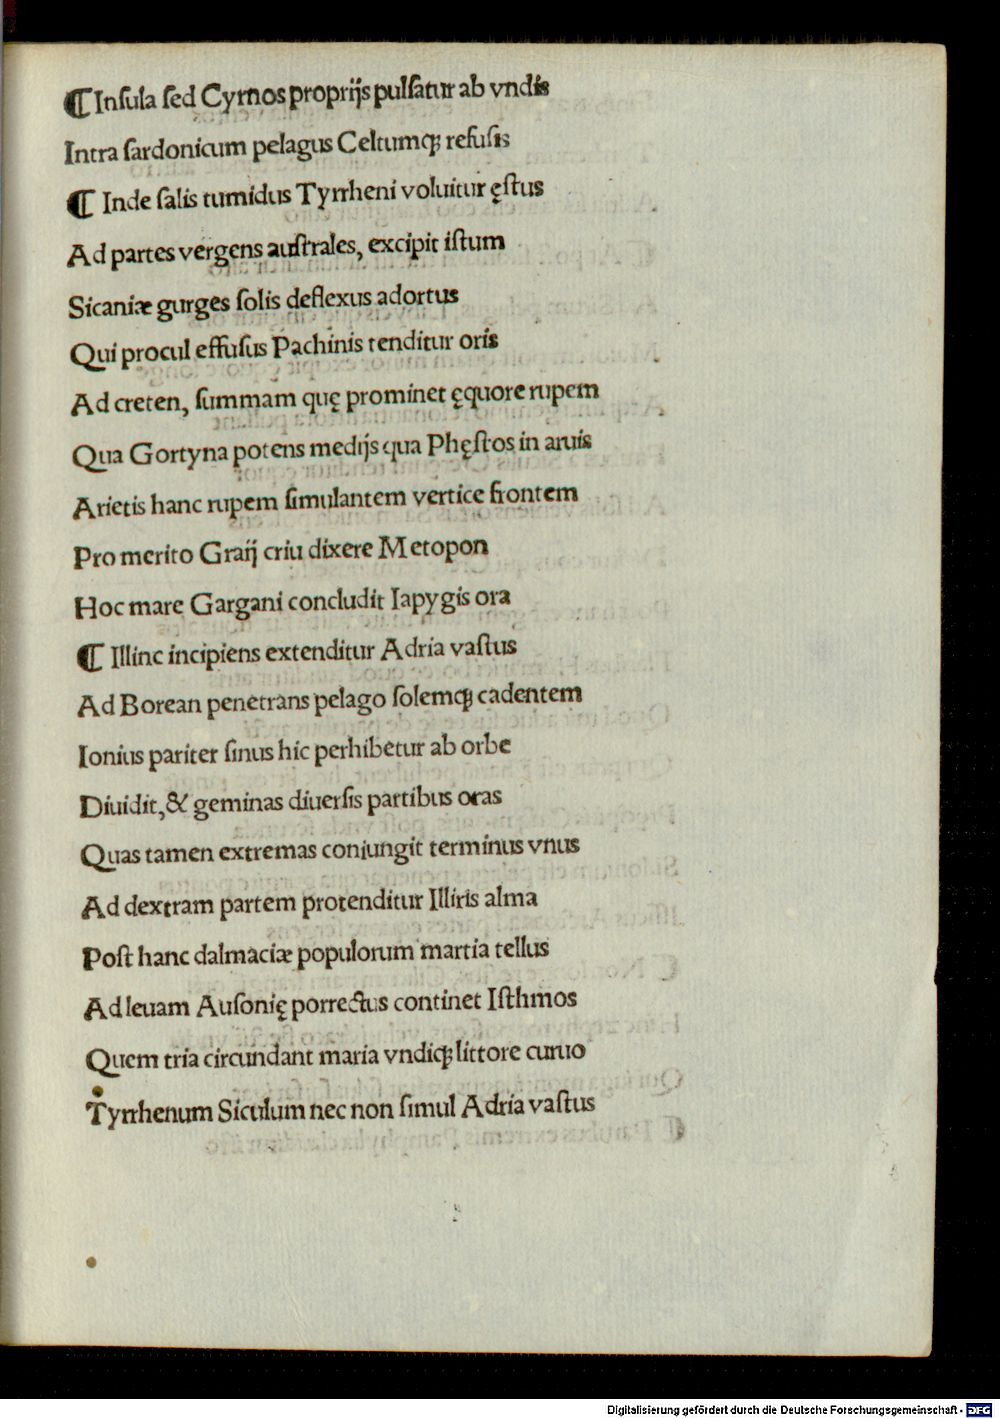 ¶ Inſula ſed Cyrnos proprijs pulſatur ab vndis
Intra ſardonicum pelagus Celtumqꝫ refuſis
¶ Inde ſalis tumidus Tyrrheni voluitur ęſtus
Ad partes vergens auſtrales, excipit iſtum
Sicaniæ gurges ſolis deflexus adortus
Qui procul effuſus Pachinis tenditur oris
Ad creten, ſummam quę prominet ęquore rupem
Qua Gortyna potens medijs qua Phęſtos in aruis
Arietis hanc rupem ſimulantem vertice frontem
Pro merito Graij criu dixere Metopon
Hoc mare Gargani concludit Iapygis ora
¶ Illinc incipiens extenditur Adria vaſtus
Ad Borean penetrans pelago ſolemqꝫ cadentem
Ionius pariter ſinus hic perhibetur ab orbe
Diuidit,& geminas diuerſis partibus oras
Quas tamen extremas coniungit terminus vnus
Ad dextram partem protenditur Illiris alma
Poſt hanc dalmaciæ populorum martia tellus
Ad leuam Auſonię porrectus continet Iſthmos
Quem tria circundant maria vndiqꝫ littore curuo
Tyrrhenum Siculum nec non ſimul Adria vaſtus
Digitalisierung gefördert durch die Deutsche Forschungsgemeinschaft - DFG